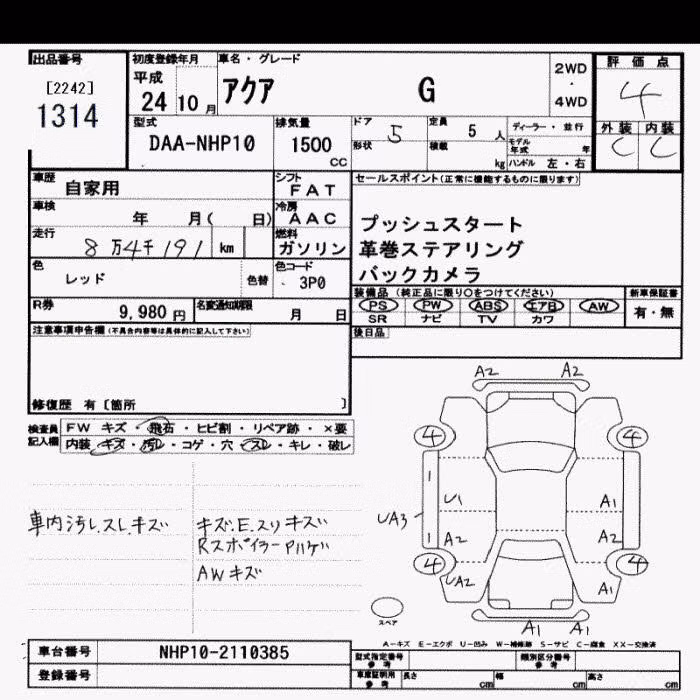 出品番号
[2242]
1314
初度登録年月
平成
24 10 月
車名・グレード
アクア G
2WD
・
4WD
評価点
4
外装 内装
C C
型式
DAA-NHP10
排気量
1500
CC
ドア 5
形状
定員 5 人
積載 kg
ディーラー・並行
モデル年式 年
ハンドル 左・右
車歴 自家用
シフト
FAT
車検 年 月( 日)
冷房
AAC
走行 8万4千191 km
燃料
ガソリン
色 レッド 色替
色コード
3P0
R券 9,980 円
名変通知期限 月 日
セールスポイント(正常に機能するものに限ります)
プッシュスタート
革巻ステアリング
バックカメラ
装備品(純正品に限り○をつけてください)
PS PW ABS エアB AW
SR ナビ TV カワ
新車保証書
有・無
後日品
注意事項申告欄(不具合内容等は具体的に記入して下さい)
修復歴 有〔箇所 〕
検査員記入欄
FW キズ・飛石・ヒビ割・リペア跡・×要
内装・キズ・汚レ・コゲ・穴・スレ・キレ・破レ
車内汚レ.スレ.キズ
キズ.E.スリキズ
Rスポイラー Pハゲ
AWキズ
A2 A2
4 4
1
U1 A1
UA3
1 A2 A2
4 4
UA2 A1
A1 A1
スペア
A-キズ E-エクボ U-凹み W-補修跡 S-サビ C-腐食 XX-交換済
車台番号 NHP10-2110385
登録番号
型式指定番号
参考
類別区分番号
参考
車庫証明用
参考
長さ cm 幅 cm 高さ cm